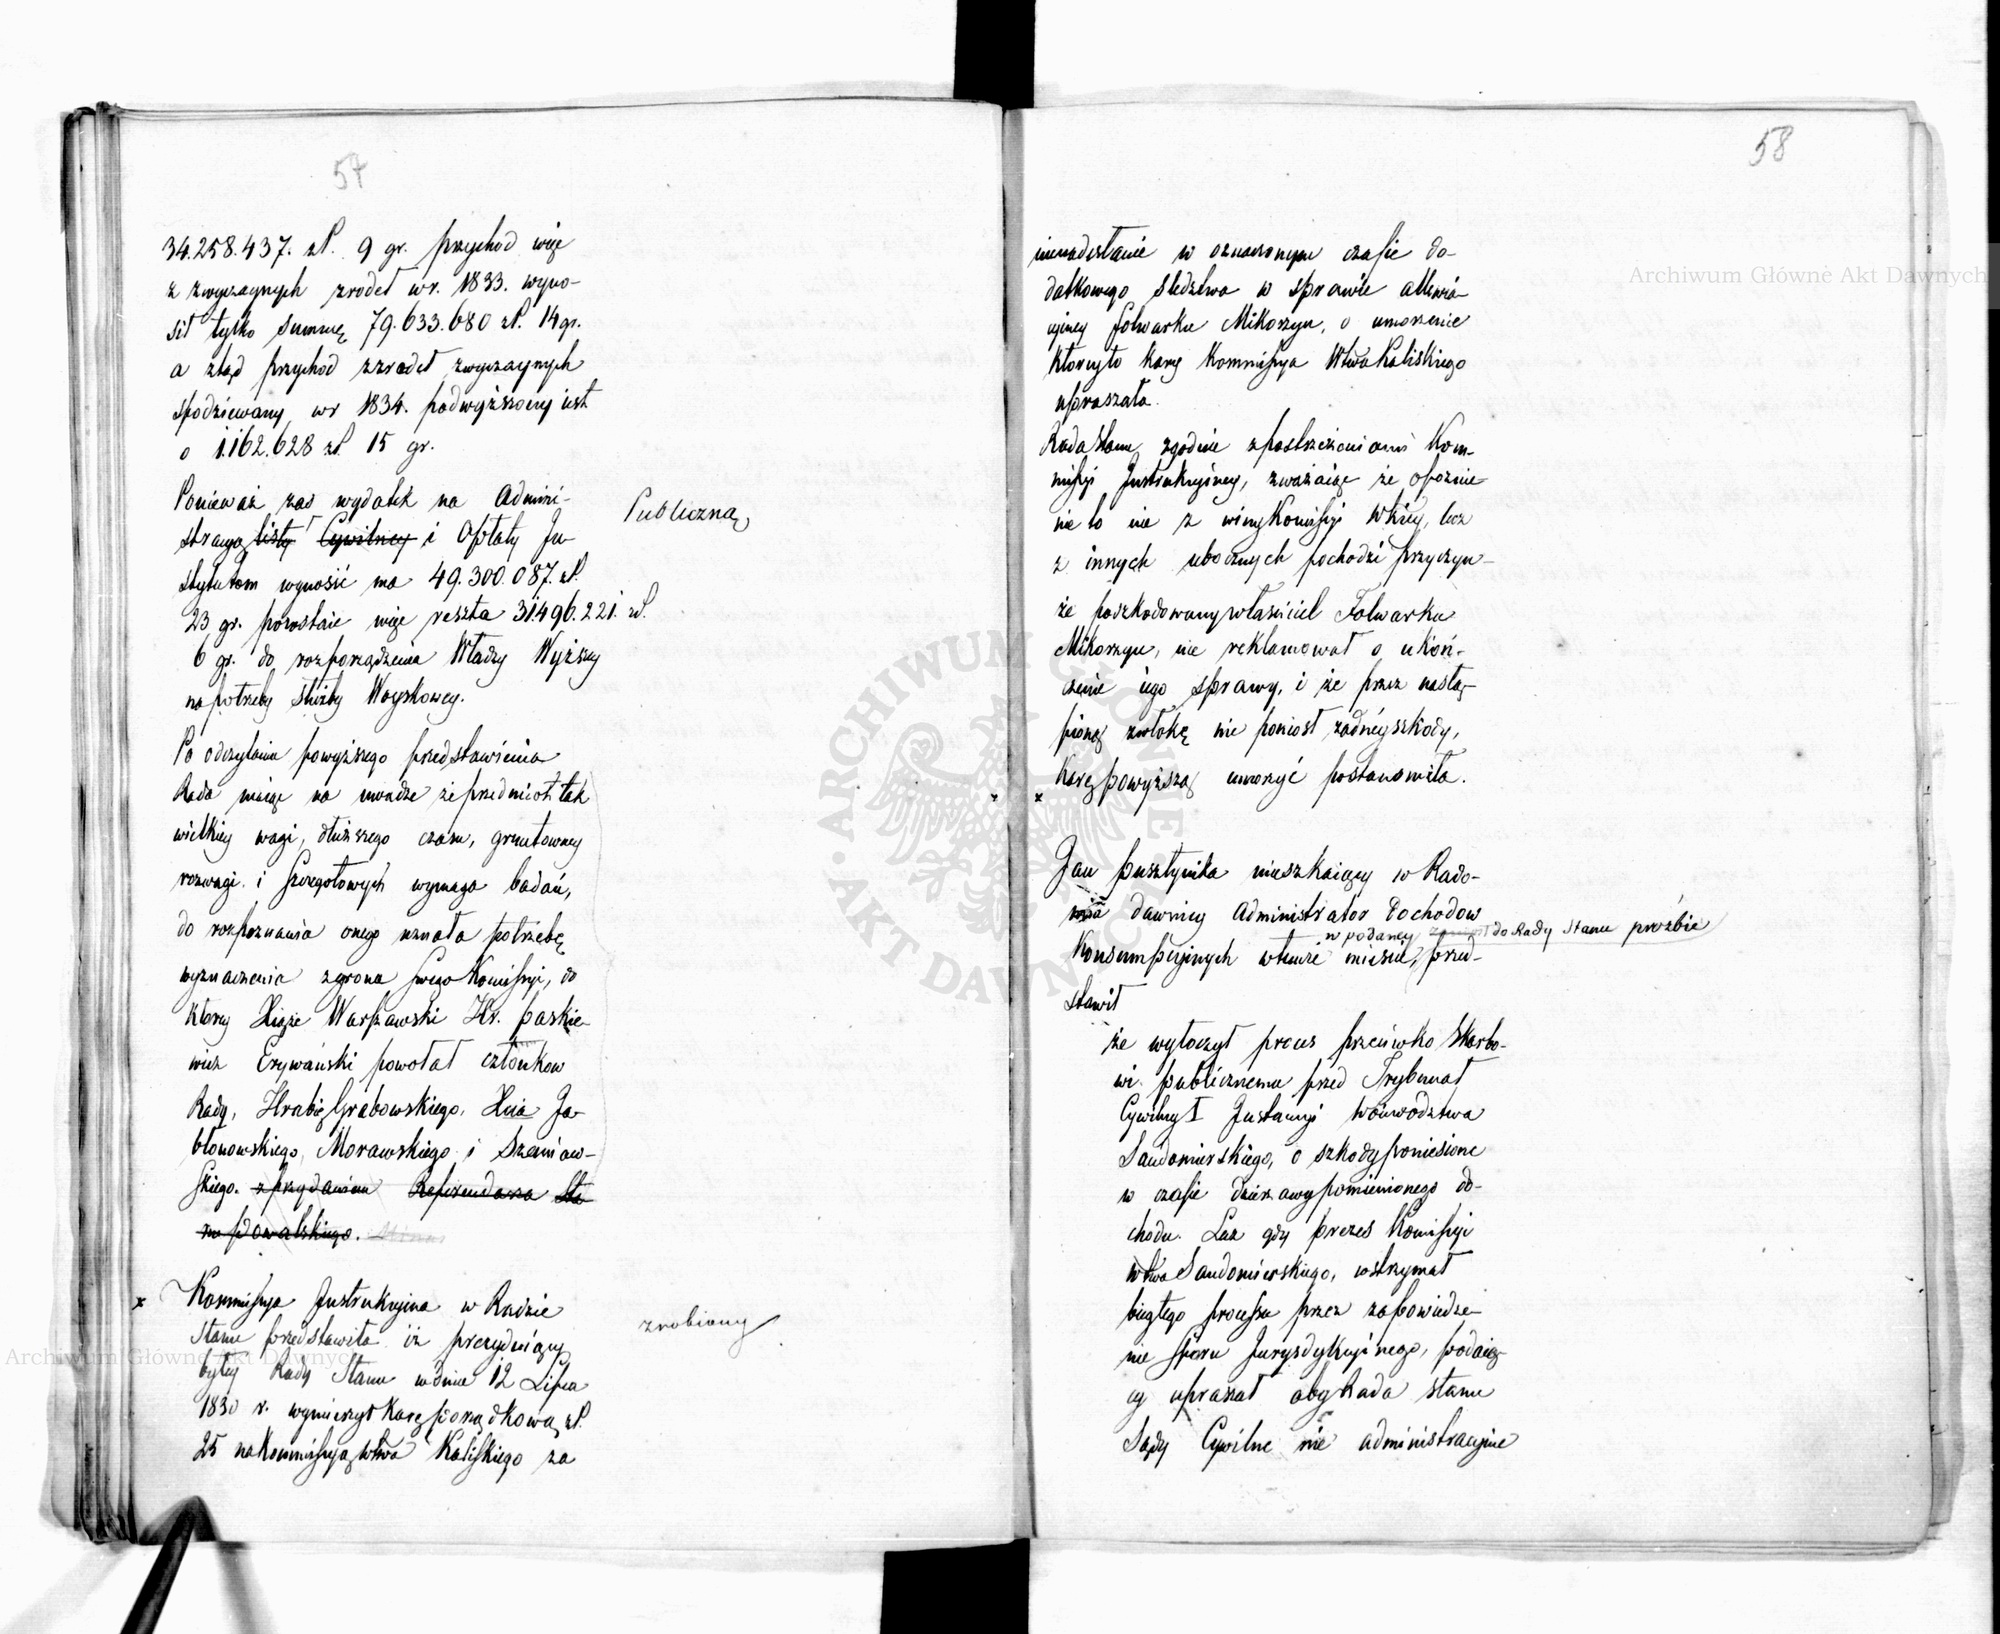 57
34.258.437. zł. 9 gr. przychod więc
z zwyczaynych zrodeł w r. 1833. wyno-
sił tylko summę 79.633.680 zł. 14 gr.
a ztąd przychod z zrodeł zwyczaynych
spodziewany w r 1834. podwyższony iest
o 1.162.628 zł. 15 gr.
Ponieważ zas wydatek na Admini-
stracyą listy Cywilney i Opłaty In-
Publiczną
stytutom wynosić ma 49.300.087. zł.
23 gr. pozostaie więc reszta 31.496.221. zł.
6 gr. do rozporządzenia Władzy Wyższey
na potrzeby Służby Woyskowey.
Po odczytaniu powyższego przedstawienia
Rada maiąc na uwadze że przedmiot tak
wielkiey wagi, dłuższego czasu, gruntowney
rozwagi i szczegołowych wymaga badań,
do rozpoznania onego uznała potrzebę
wyznaczenia z grona swego Kommissyi, do
ktorey Xiąże Warszawski Hr. Paskie-
wicz Erywański powołał członkow
Rady, Hrabię Grabowskiego, Xcia Ja-
błonowskiego, Morawskiego i Szaniaw-
skiego. z przydaniem Referendarza Sta-
nu
x Kommissya Instrukcyina w Radzie
Stanu przedstawiła iż prezyduiący
zrobiony
byłey Rady Stanu w dniu 12 Lipca
1830 r. wymierzył karę porządkową zł.
25 na Kommissyą Wtwa Kaliskiego za
58
nienadesłanie w oznaczonym czasie do-
datkowego śledztwa w sprawie allewia-
cyiney folwarku Mikorzyn, o umorzenie
ktoreyto kary Kommissya Wtwa Kaliskiego
upraszała.
Rada Stanu zgodnie z postrzeżeniami Kom-
missyi Instrukcyiney, zważaiąc że opoznie-
nie to nie z winy Komissyi Wkiey, lecz
z innych ubocznych pochodzi przyczyn-
że poszkodowany właściciel Folwarku
Mikorzyn, nie reklamował o ukoń-
czenie iego sprawy, i że przez nastą-
pioną zwłokę nie poniosł żadnéy szkody,
karę powyższą umorzyć postanowiła.
x
Jan Pustynika mieszkaiący w Rado-
miu dawniey Administrator Dochodow
w podaney do Rady Stanu prozbie
Konsumpcyinych w temże miescie, przed-
stawił
że wytoczył proces przeciwko Skarbo-
wi publicznemu przed Trybunał
Cywilny I Instancyi Woiewodztwa
Sandomierskiego, o szkody poniesione
w czasie dzierzawy pomienionego do-
chodu. Lecz gdy prezes Komissyi
Wtwa Sandomierskiego, wstrzymał
biegłego processu przez zapowiedze-
nie sporu Jurysdykcyinego, podaią-
cy upraszał aby Rada Stanu
Sądy Cywilne nie administracyine
Archiwum Główne Akt Dawnych
Archiwum Główne Akt Dawnych
ARCHIWUM GŁÓWNE · AKT DAWNYCH